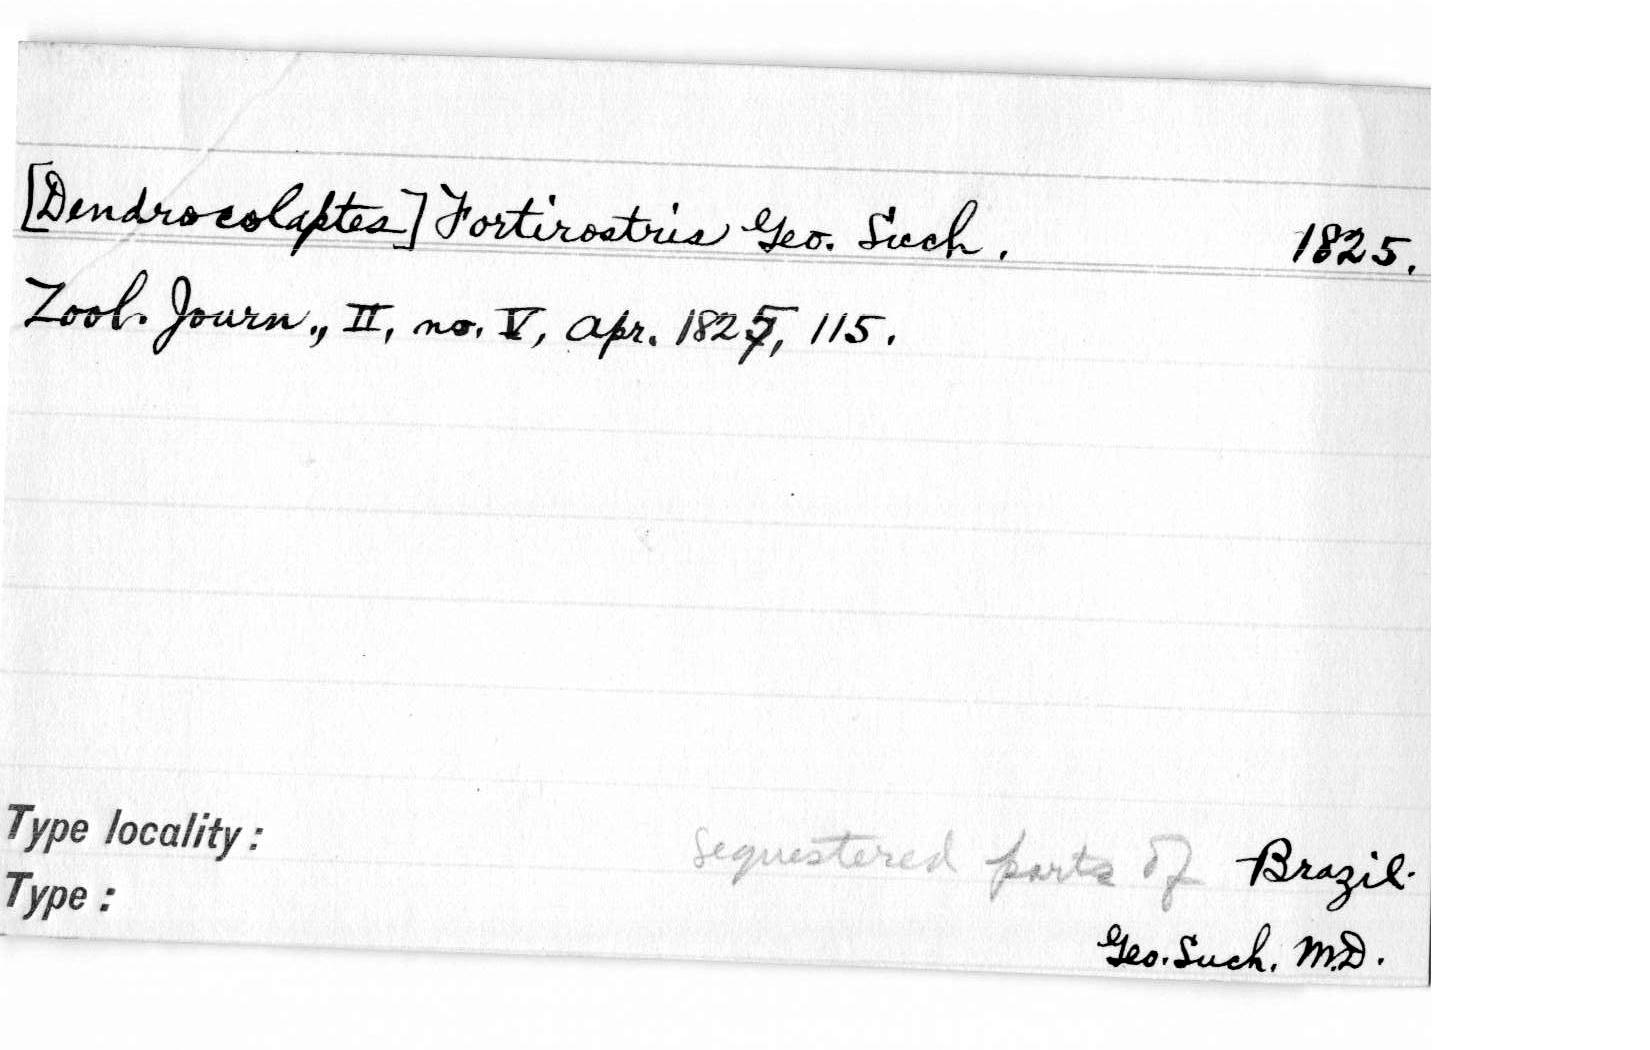 [Dendrocolaptes] Fortirostris Geo. Such. 1825.
Zool. Journ., II, no. V, Apr. 1825, 115.
Type locality: sequestered parts of Brazil.
Type:
Geo. Such. M.D.